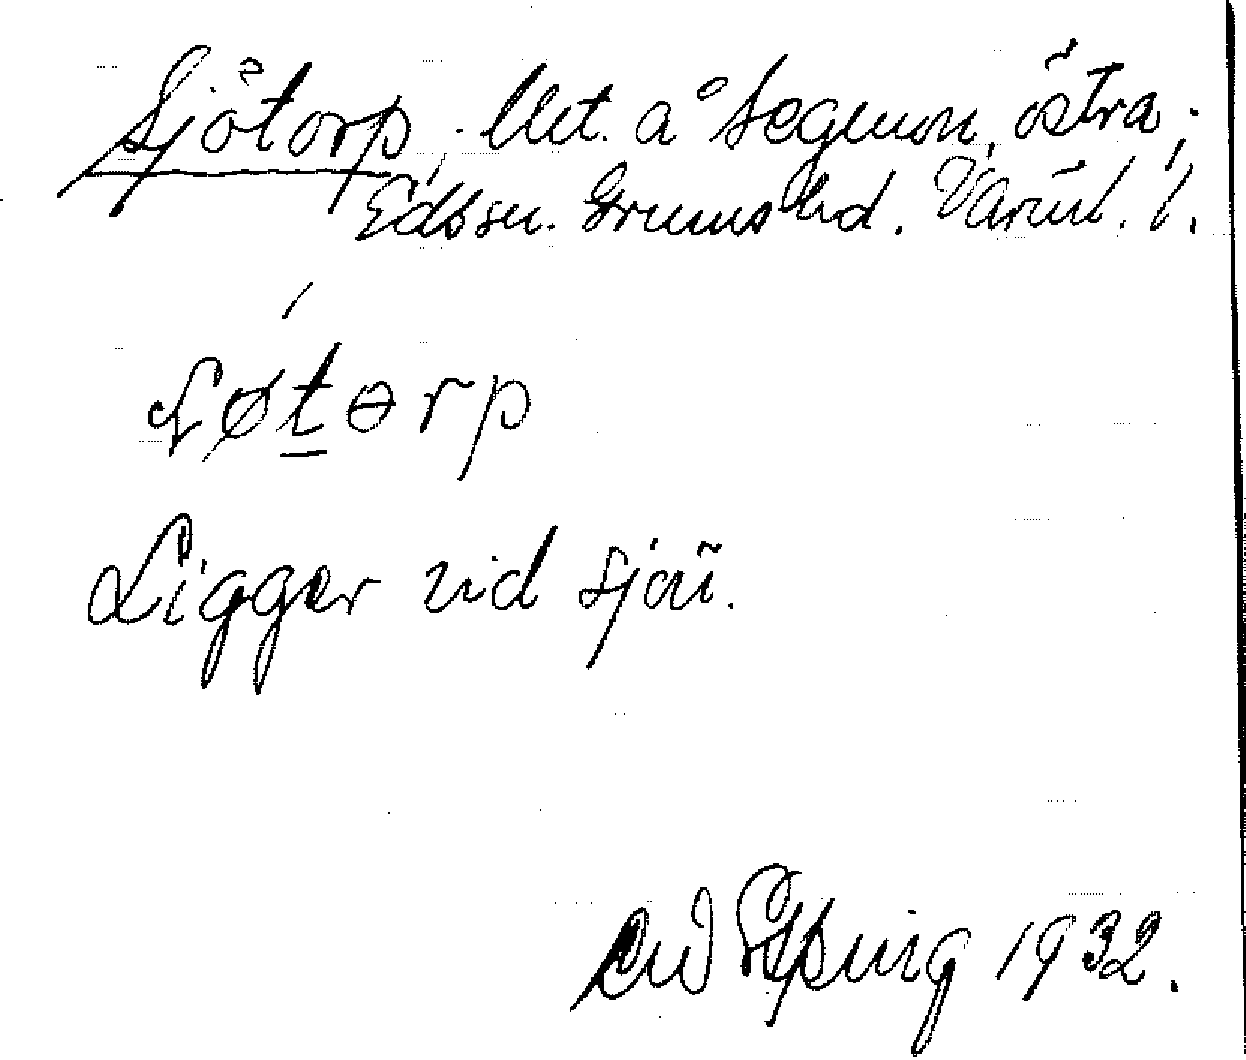 Sjötorp, Utt. å Segmon, östra;
Edssn. Grums hd. Värml. l.
ʃøt̲ɵrp
Ligger vid sjön.
1932.